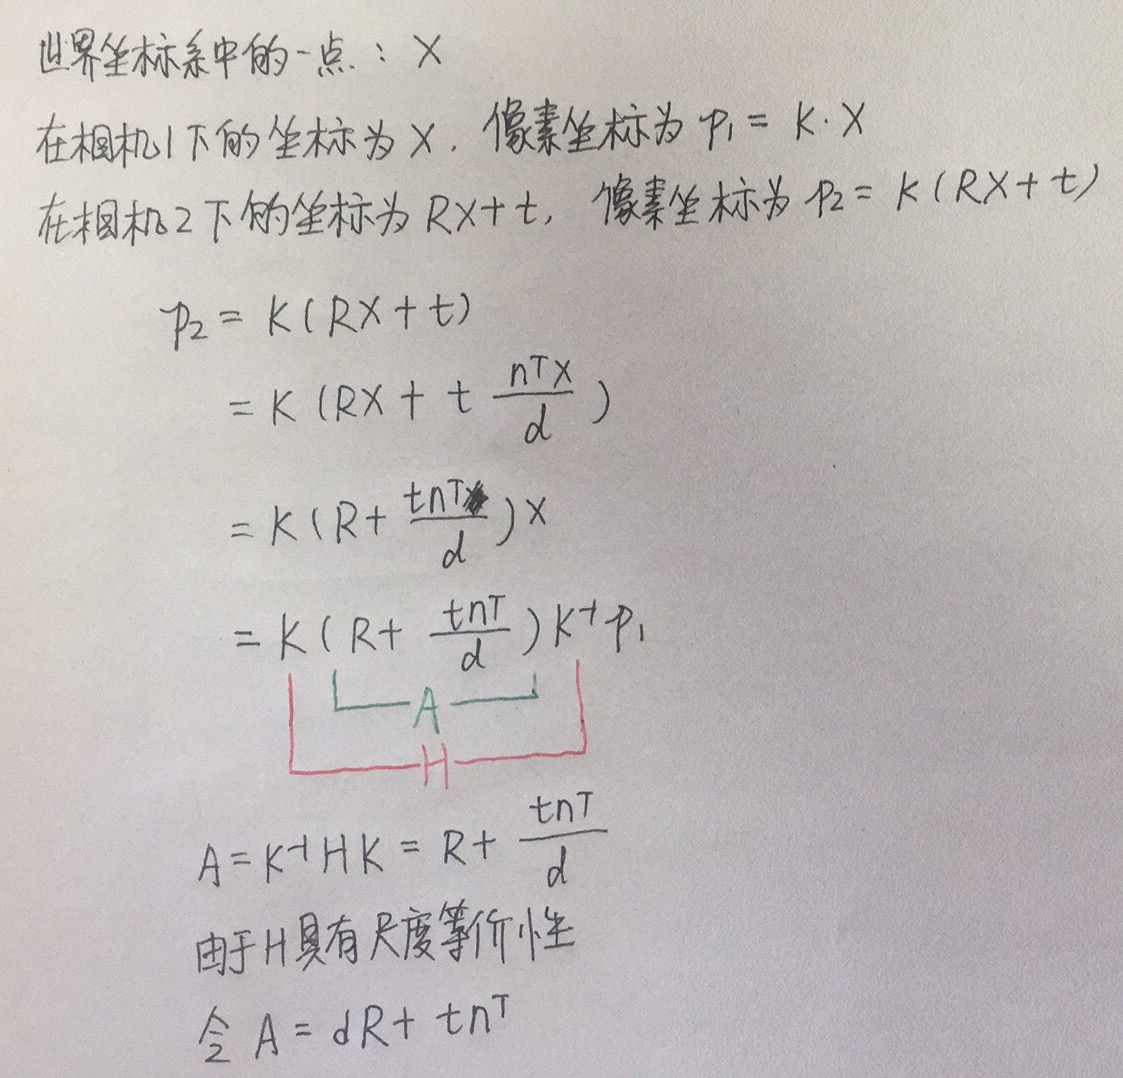 世界坐标系中的一点：X
在相机1下的坐标为X，像素坐标为 p₁ = K·X
在相机2下的坐标为RX+t，像素坐标为 p₂ = K(RX+t)
p₂ = K(RX+t)
= K(RX + t nᵀX/d)
= K(R + tnᵀ/d)X
= K(R + tnᵀ/d)K⁻¹p₁
A
H
A = K⁻¹HK = R + tnᵀ/d
由于H具有尺度等价性
令 A = dR + tnᵀ